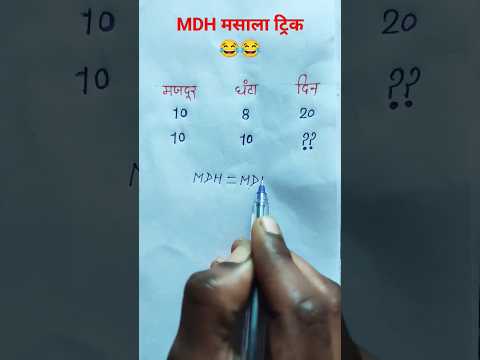 MDH मसाला ट्रिक
😂😂
मजदूर घंटा दिन
10 8 20
10 10 ??
MDH = MD